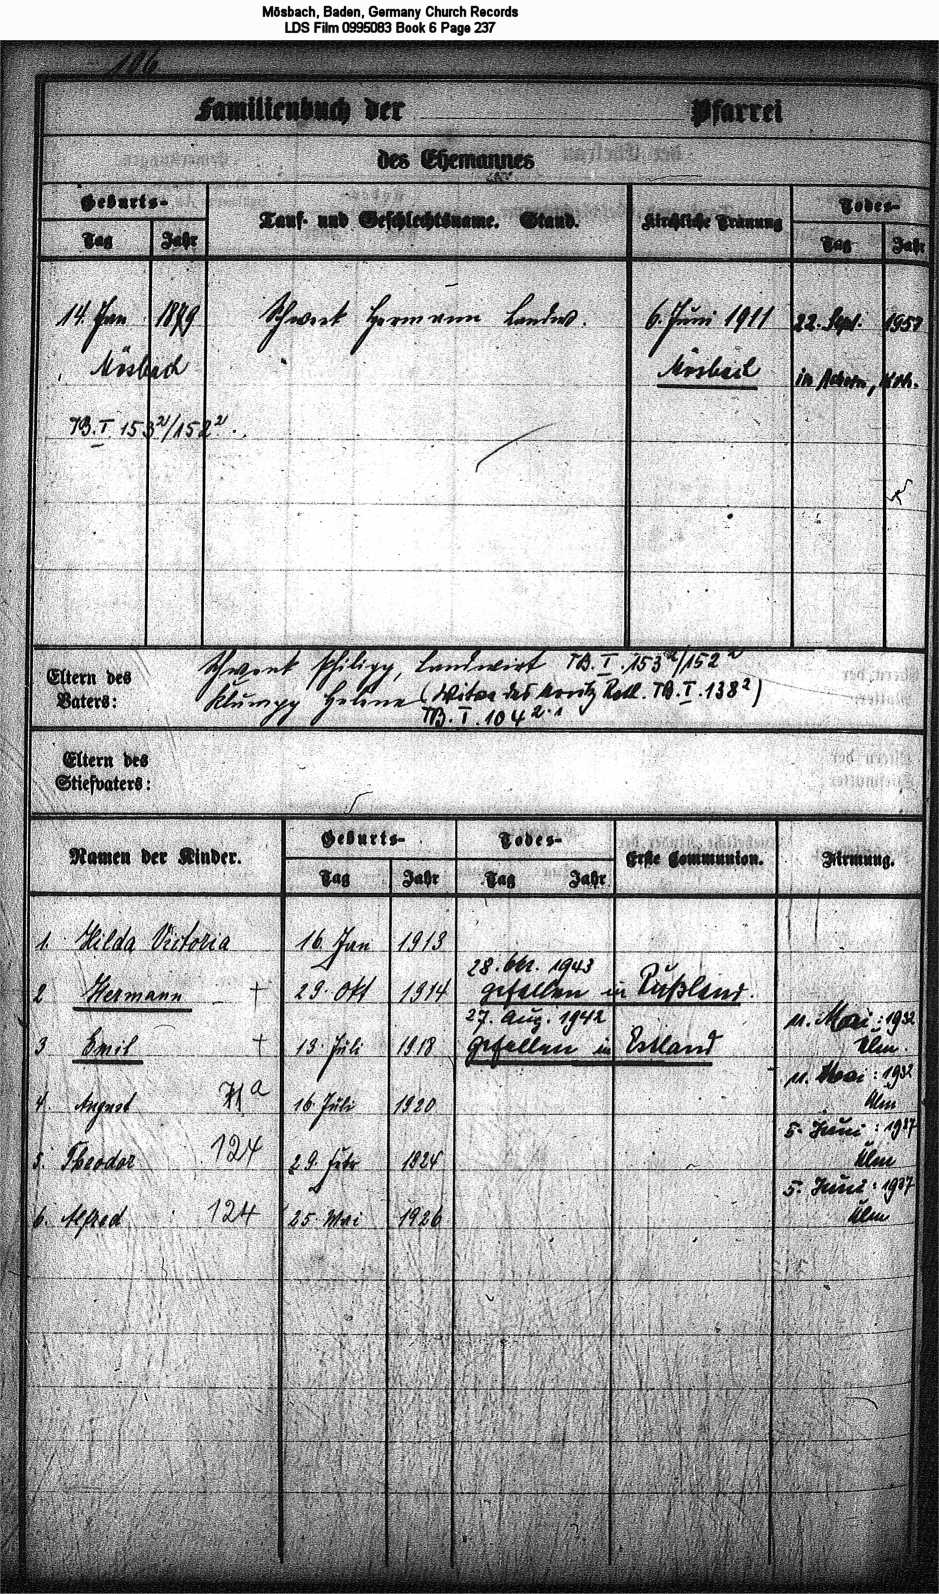 Mösbach, Baden, Germany Church Records
LDS Film 0995083 Book 6 Page 237
106
Familienbuch der Pfarrei
des Ehemannes
Geburts-
Tag Jahr
Tauf- und Geschlechtsname. Stand.
Kirchliche Trauung
Todes-
Tag Jahr
14. Jan 1879 Schwenk Hermann Landw. 6. Juni 1911 22. Sept. 1957
Mösbach Mösbach in Achern,
TB. I 153²/152².
Eltern des Vaters:
Schwenk Philipp, Landwirt TB. I. 153²/152²
Klumpp Helene (Witwe des Moritz TB. I. 138²)
TB. I. 104².
Eltern des Stiefvaters:
Namen der Kinder.
Geburts-
Tag Jahr
Todes-
Tag Jahr
Erste Communion.
Firmung.
1. Hilda Victoria 16. Jan 1913
28. Okt. 1943
2 Hermann † 29. Okt 1914 gefallen in Rußland.
27. Aug. 1942 11. Mai : 1932
3 Emil † 13. Juli 1918 gefallen in Estland Ulm.
11. Mai : 1932
4. August 71a 16. Juli 1920 Ulm
5. Juni : 1937
5. Theodor 124 29. Febr 1824 Ulm
5. Juni : 1937
6. Alfred 124 25. Mai 1926 Ulm